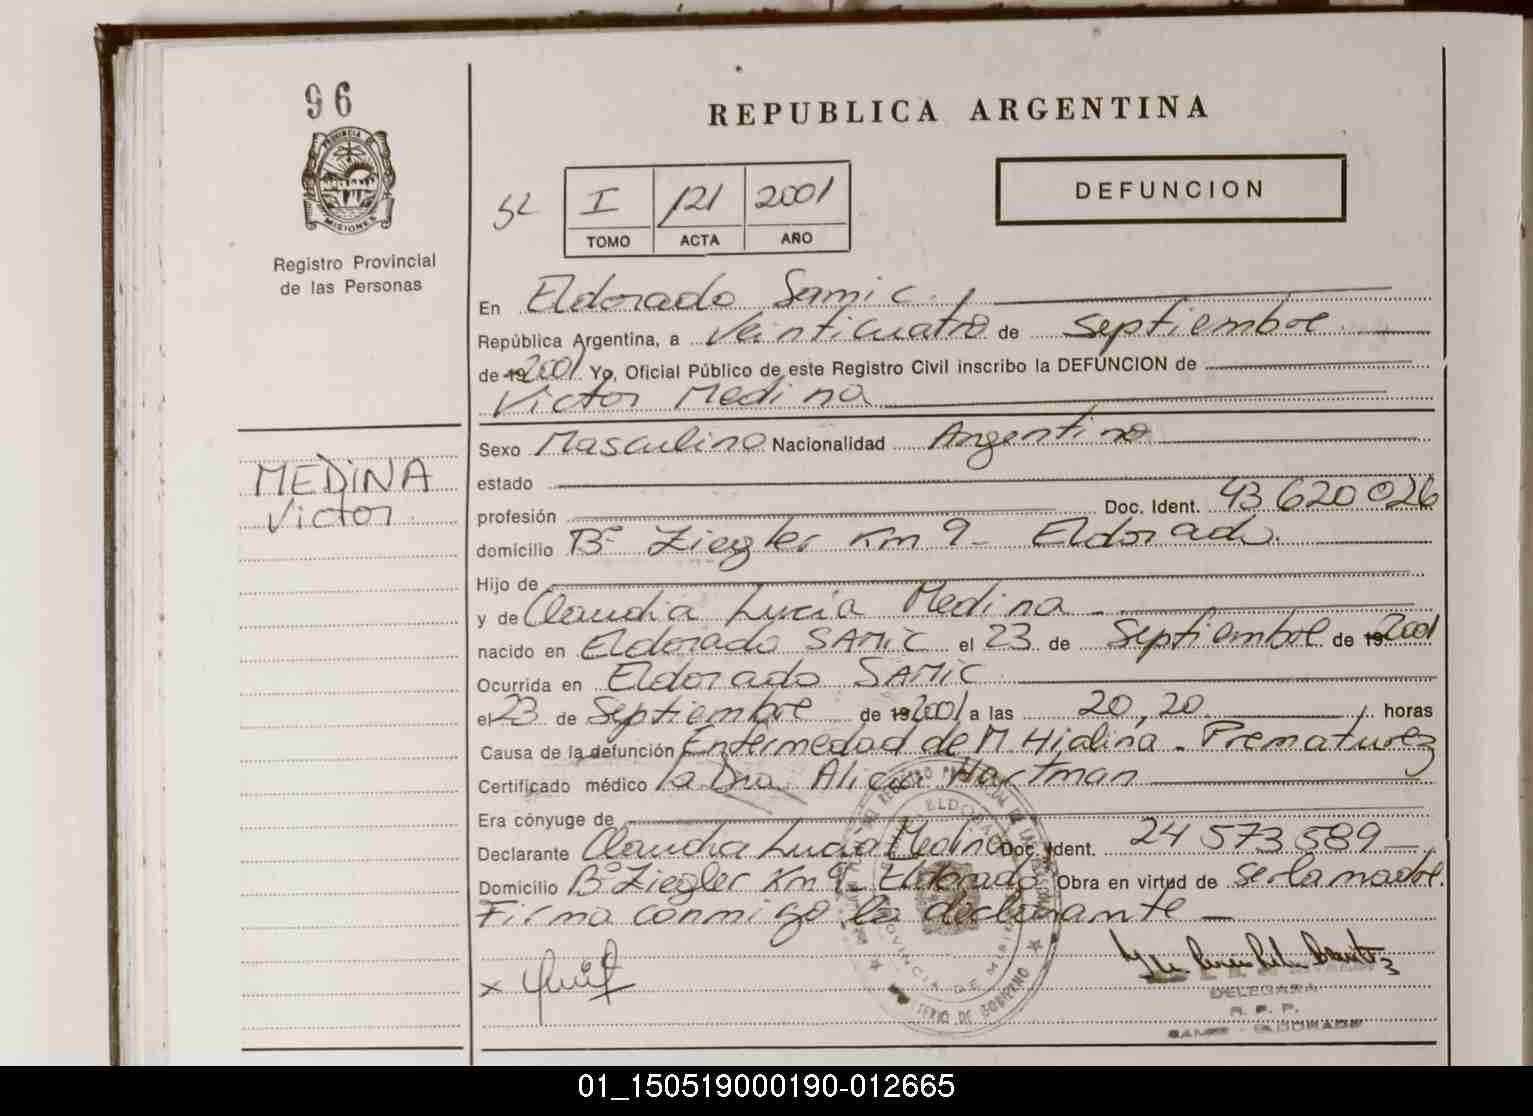 96
REPUBLICA ARGENTINA
PROVINCIA DE
MISIONES
Registro Provincial
de las Personas
DEFUNCION
I 121 2001
TOMO ACTA AÑO
En Eldorado Samic.
República Argentina, a Veinticuatro de septiembre
de 19 2001 Yo, Oficial Público de este Registro Civil inscribo la DEFUNCION de
Victor Medina
MEDINA
Victor
Sexo Masculino Nacionalidad Argentino
estado
profesión Doc. Ident. 43 620 026
domicilio Bº Ziegler Km 9 - Eldorado.
Hijo de
y de Claudia Lucía Medina -
nacido en Eldorado SAMIC el 23 de Septiembre de 19 2001
Ocurrida en Eldorado SAMIC
el 23 de Septiembre de 19 2001 a las 20,20 horas
Causa de la defunción Enfermedad de M. Hialina - Prematurez
Certificado médico la Dra Alicia Hartman
Era cónyuge de
Declarante Claudia Lucía Medina Doc. Ident. 24 573 589
Domicilio Bº Ziegler Km 9 - Eldorado Obra en virtud de ser la madre.
Firma conmigo la declarante -
x
ELDORADO
PROVINCIA DE MISIONES
MINISTERIO DE GOBIERNO
DELEGADA
R. P. P.
SAMIC - ELDORADO
01_150519000190-012665